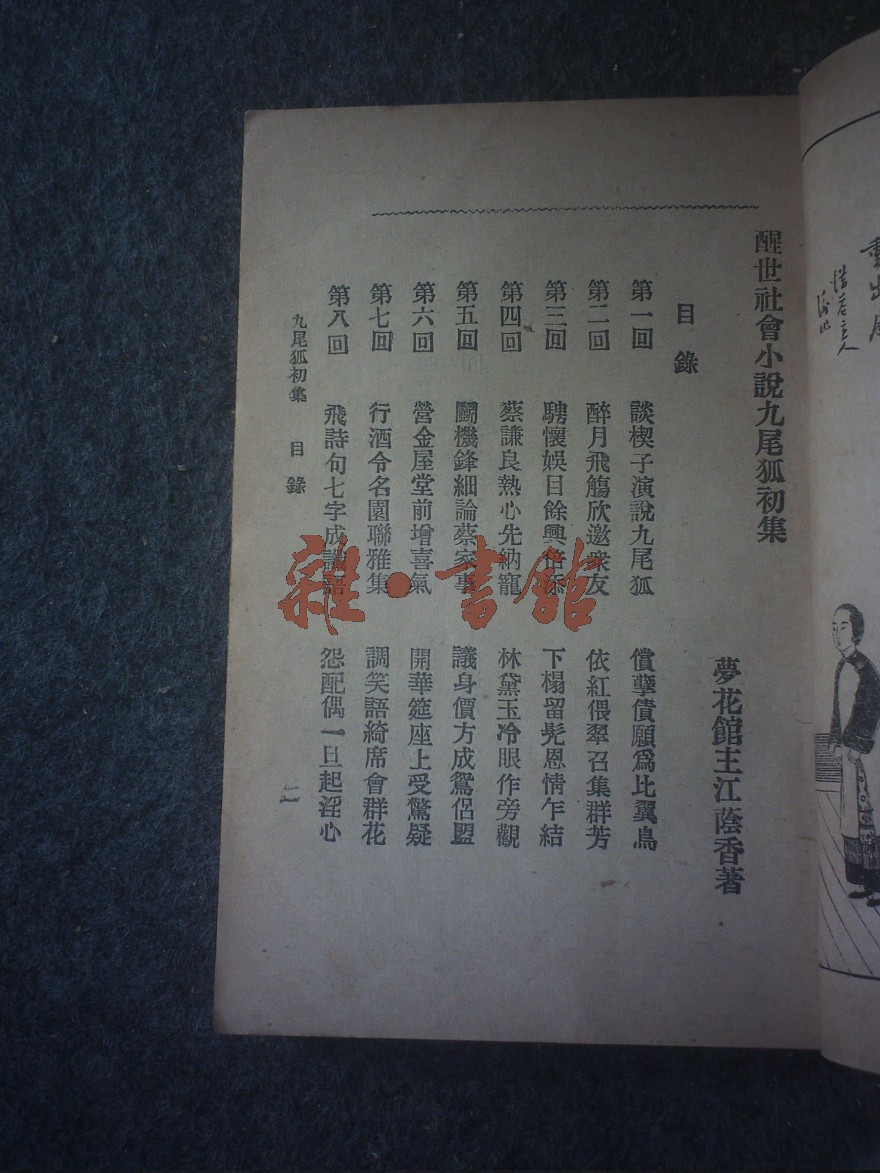 醒世社會小說九尾狐初集
夢花館主江蔭香著
目錄
第一回 談楔子演說九尾狐 償孽債願爲比翼鳥
第二回 醉月飛觴欣邀衆友 依紅偎翠召集群芳
第三回 騁懷娛目餘興 下榻留髡恩情乍結
第四回 蔡謙良熱心先納寵 林黛玉冷眼作旁觀
第五回 鬭機鋒細論蔡家事 議身價方成鴛侶盟
第六回 營金屋堂前增喜氣 開華筵座上受驚疑
第七回 行酒令名園聯雅集 調笑語綺席會群花
第八回 飛詩句七字成 怨配偶一旦起淫心
九尾狐初集 目錄
雜·書館